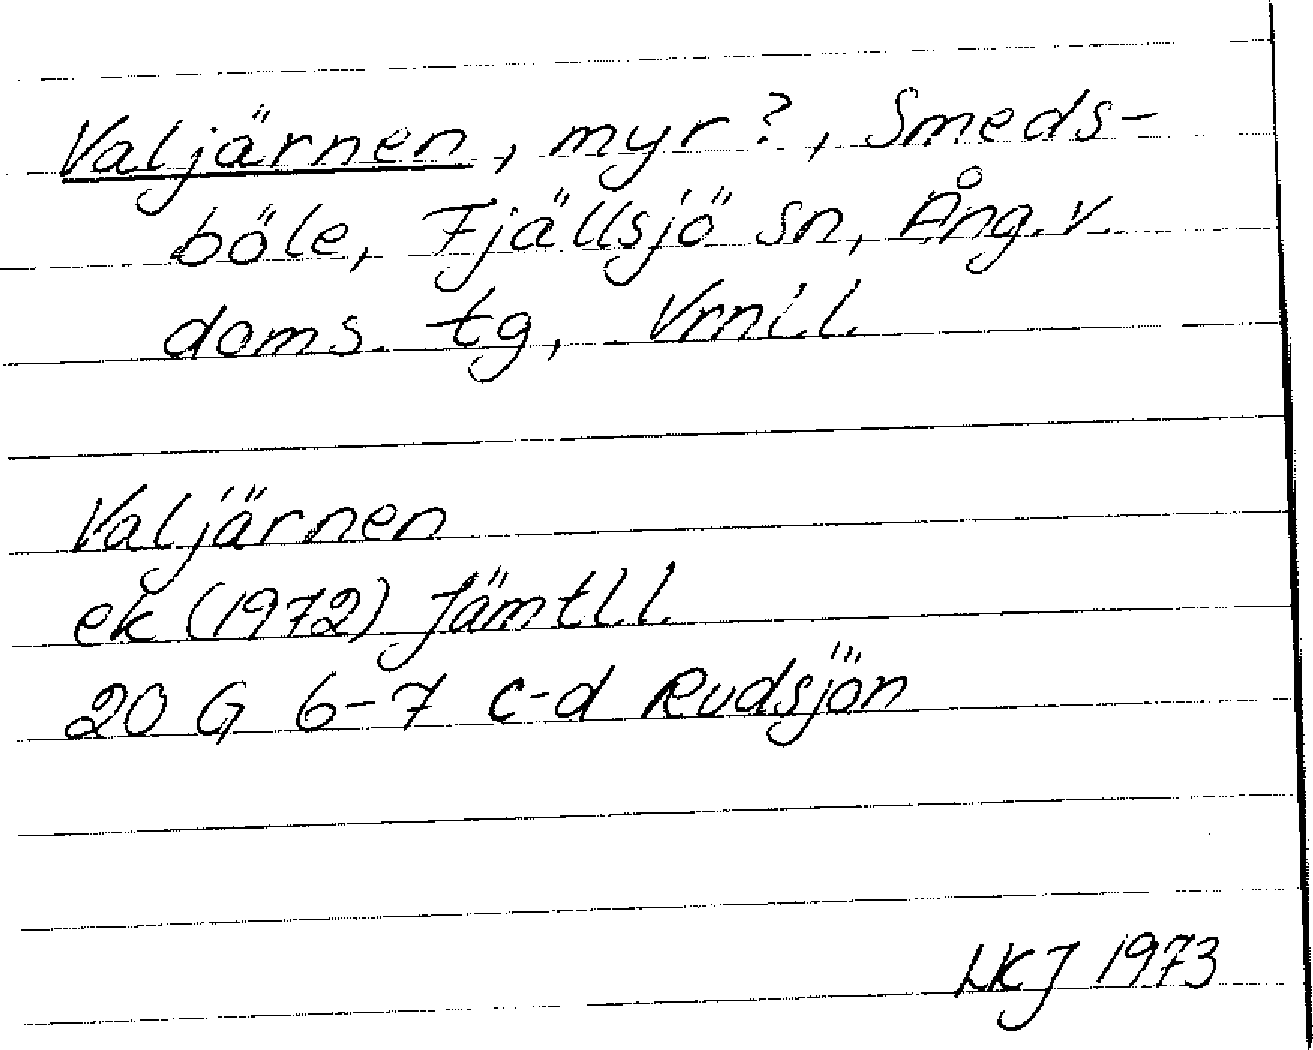 Valjärnen, myr?, Smeds-
böle, Fjällsjö sn, Ång. v.
doms. tg, Vrnl.l.
Valjärnen
ek (1972) Jämtl.l.
20 G 6-7 c-d Rudsjön
LKJ 1973